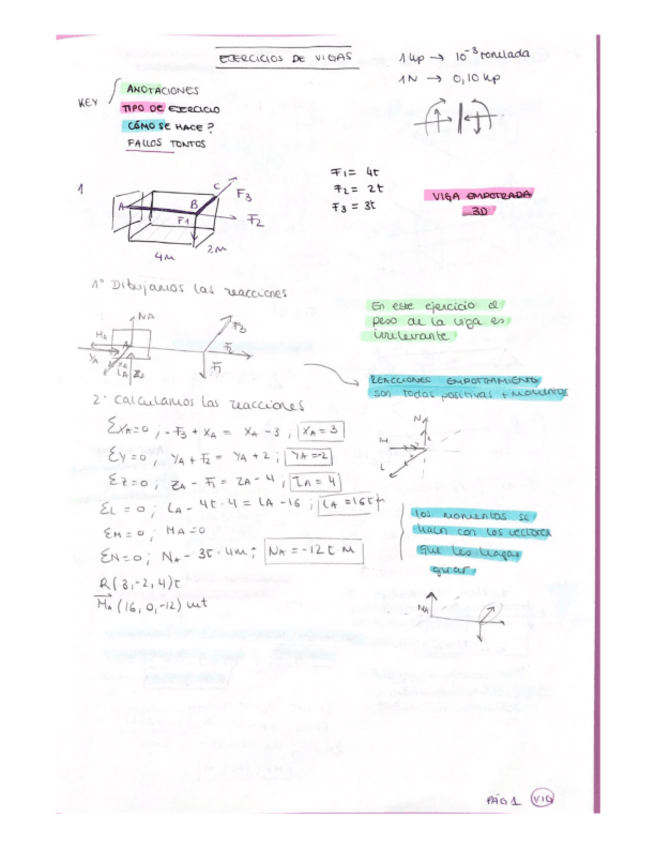 EJERCICIOS DE VIGAS
1 Kp → 10⁻³ tonelada
1 N → 0,10 Kp
KEY
ANOTACIONES
TIPO DE EJERCICIO
CÓMO SE HACE?
FALLOS TONTOS
1
A
B
C
F3
F2
F1
4m
2m
F1 = 4t
F2 = 2t
F3 = 3t
VIGA EMPOTRADA
3D
1º Dibujamos las reacciones
En este ejercicio el
peso de la viga es
irrelevante
NA
MA
YA
A
XA
LA
F3
F2
F1
REACCIONES EMPOTRAMIENTO
son todas positivas + MOMENTOS
2º Calculamos las reacciones
ΣXA=0; -F3 + XA = XA - 3; XA = 3
ΣY=0; YA + F2 = YA + 2; YA = -2
ΣZ=0; ZA - F1 = ZA - 4; ZA = 4
ΣL = 0; LA - 4t·4 = LA - 16; LA = 16t M
ΣM=0; MA=0
ΣN=0; NA - 3t·4m; NA = -12t·m
R(3,-2,4)t
MA (16,0,-12) mt
N
M
L
Los momentos se
hacen con los vectores
que los hagan
girar
NA
PÁG 1 VIG